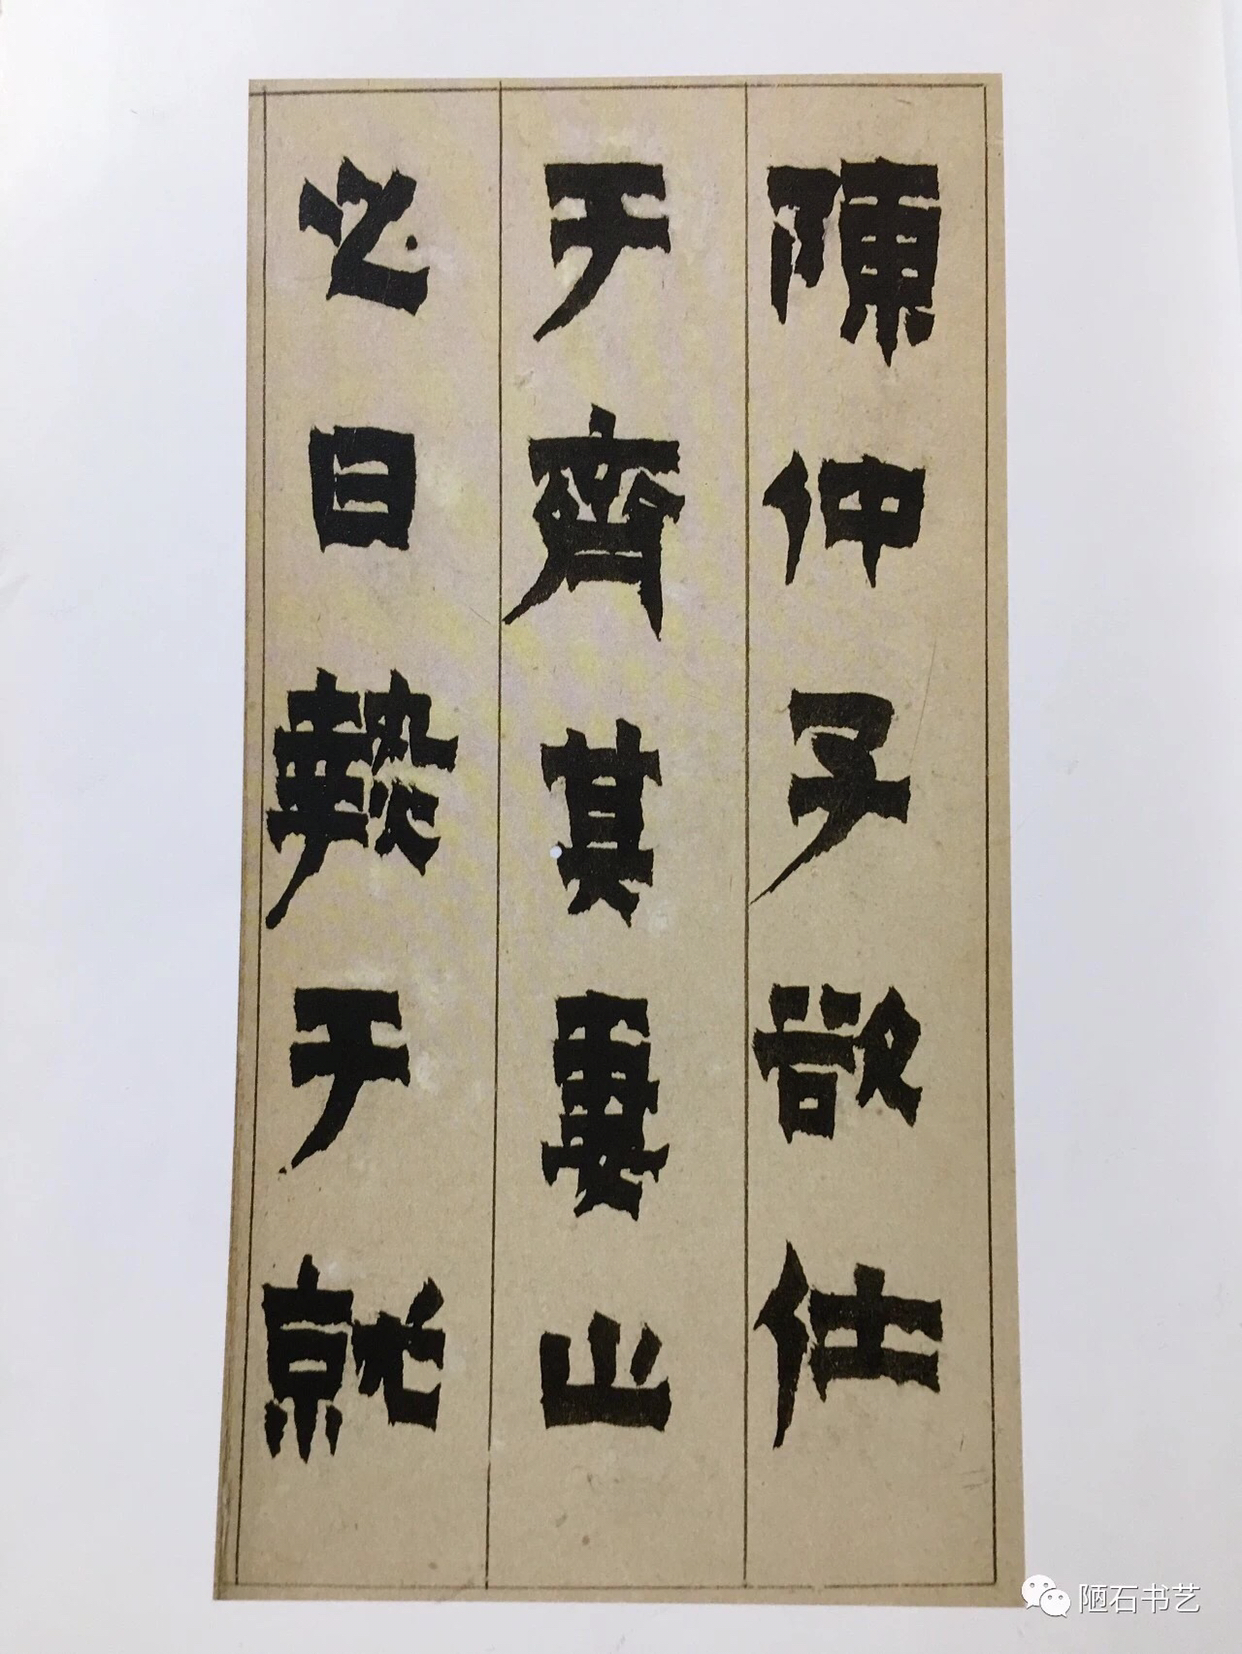 陳仲子欲仕
于齊其妻止
之曰于就
陋石书艺